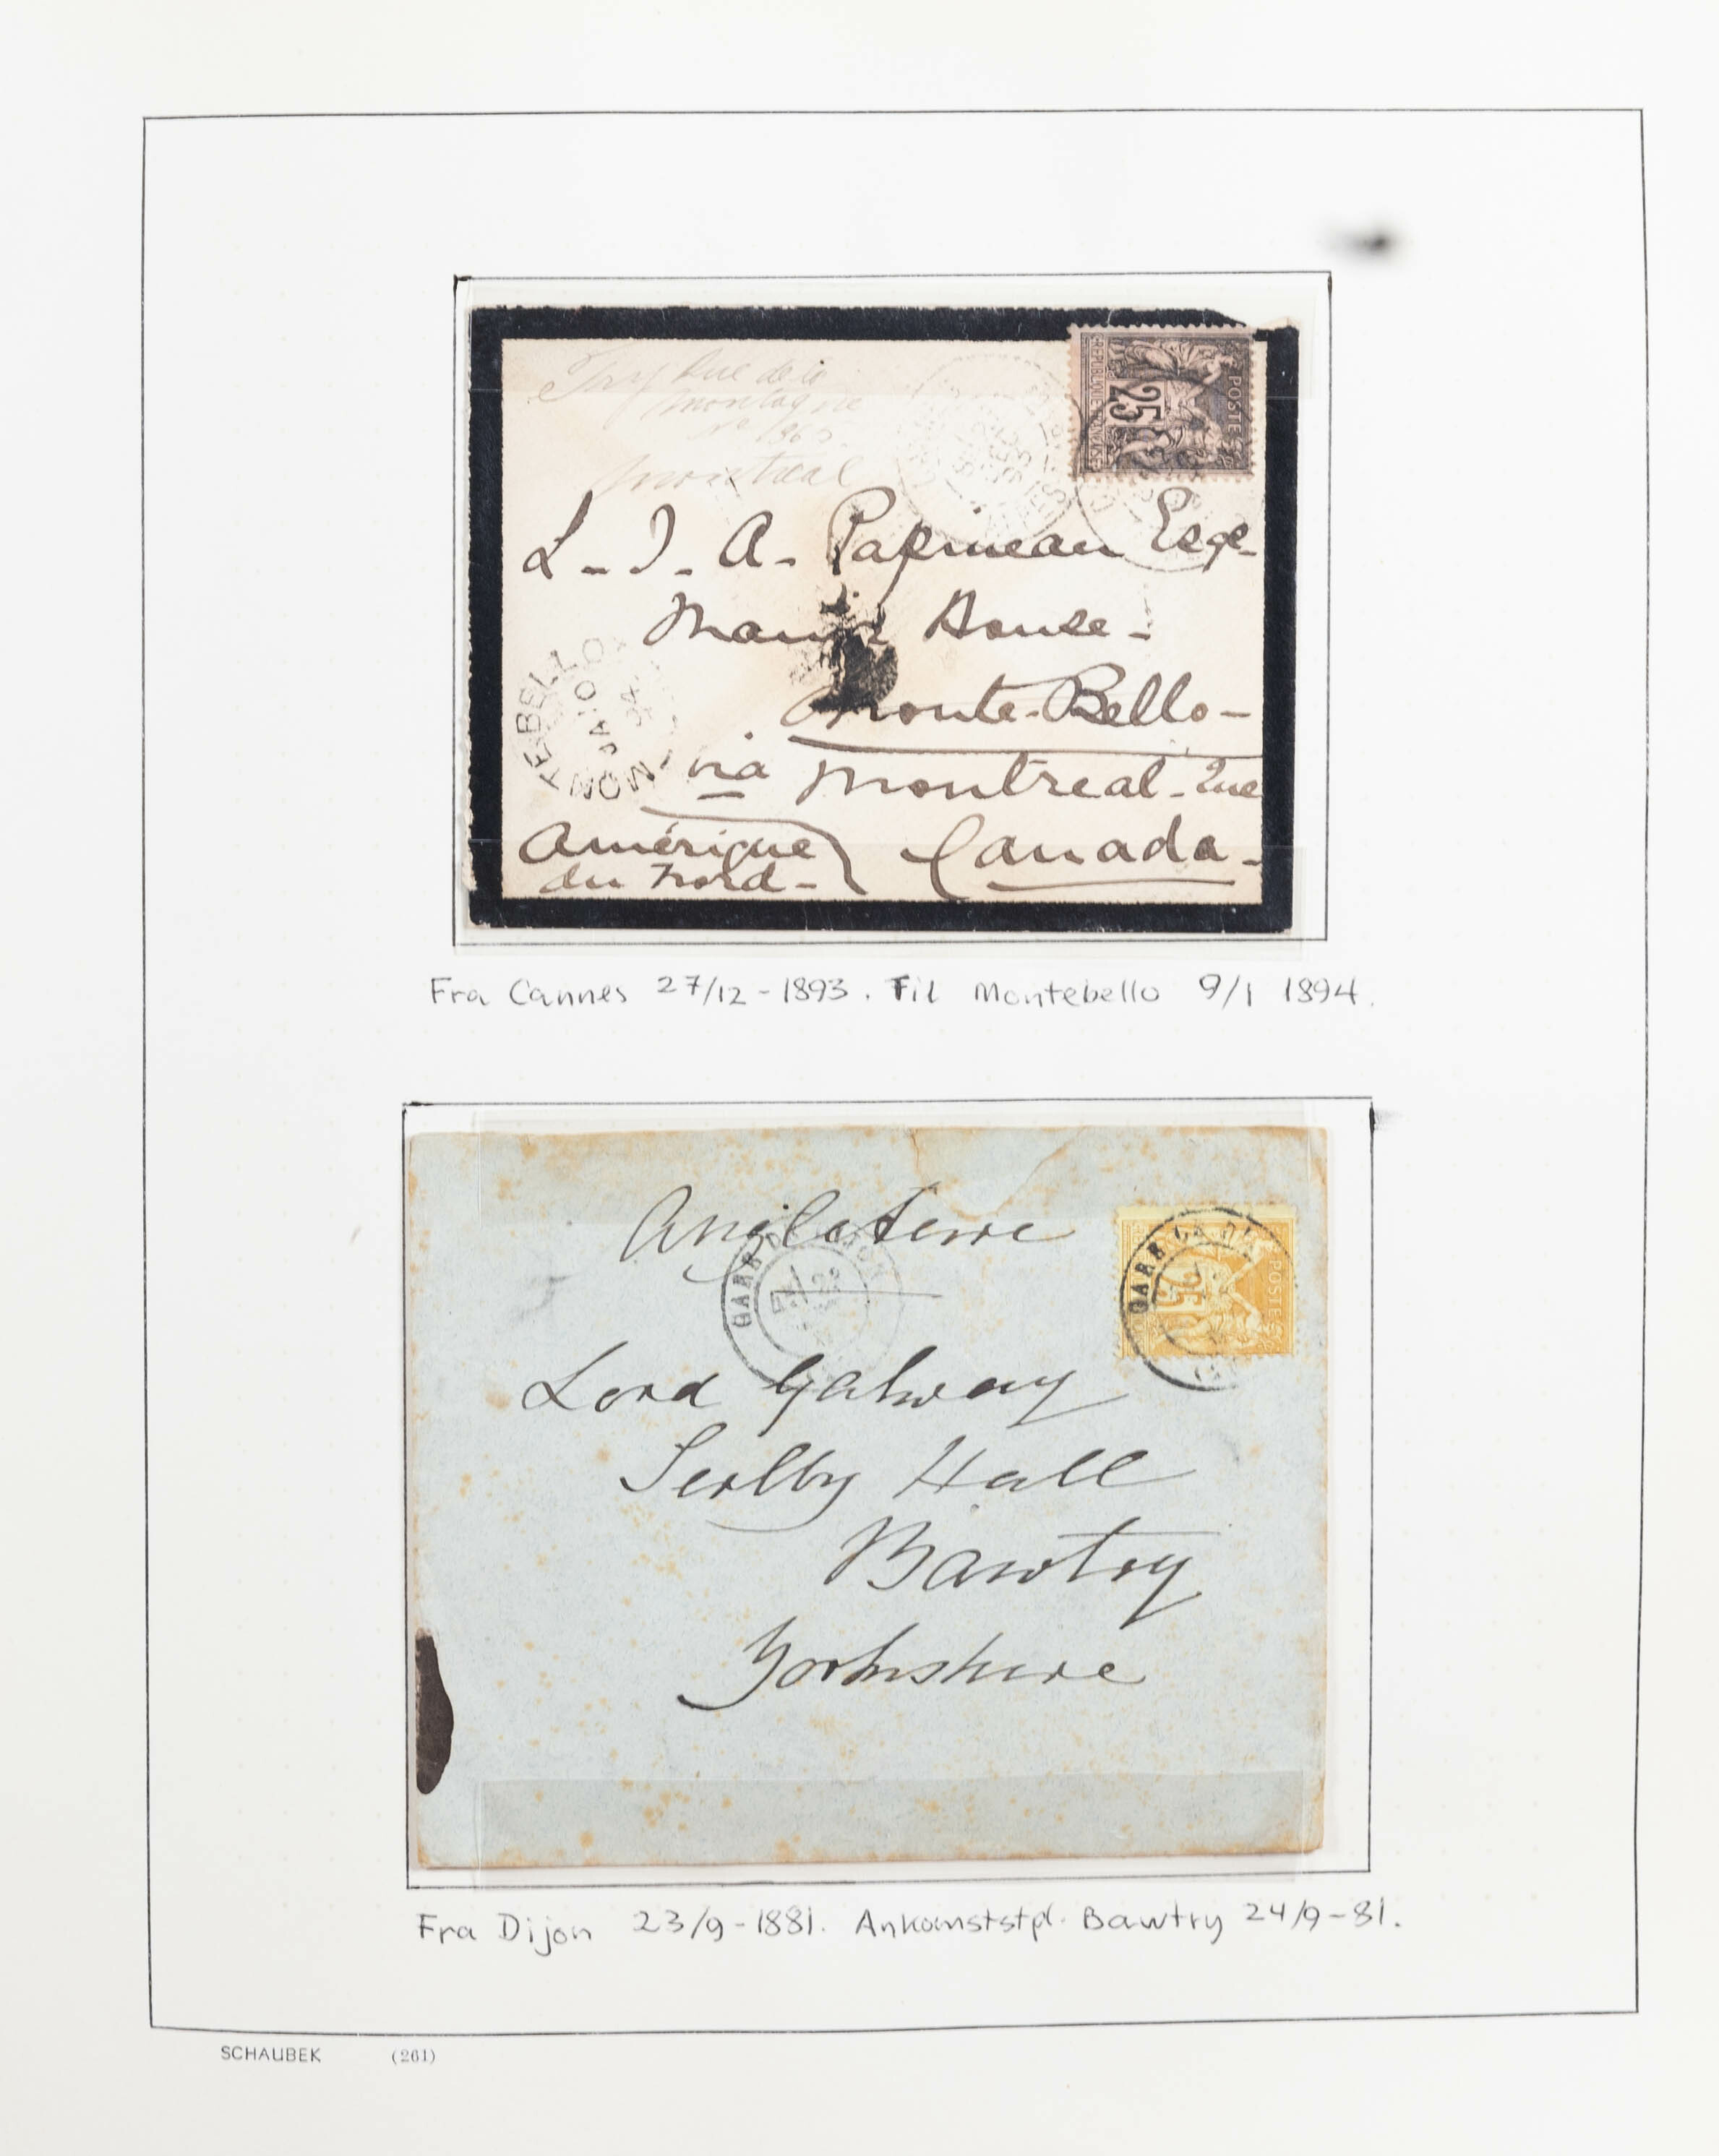 Rue de la
Montagne
Montreal
25
REPUBLIQUE FRANCAISE
POSTES
L - J. A - Papineau Esqe-
Manor House -
Monte-Bello -
MONTEBELLO
JA 10
94
via Montreal - Que
Amérique Canada -
du Nord -
Fra Cannes 27/12 - 1893. Til Montebello 9/1 1894.
Angleterre
GARE
25
POSTES
Lord Galway
Serlby Hall
Bawtry
Yorkshire
Fra Dijon 23/9 - 1881. Ankomststpl. Bawtry 24/9 - 81.
SCHAUBEK (261)